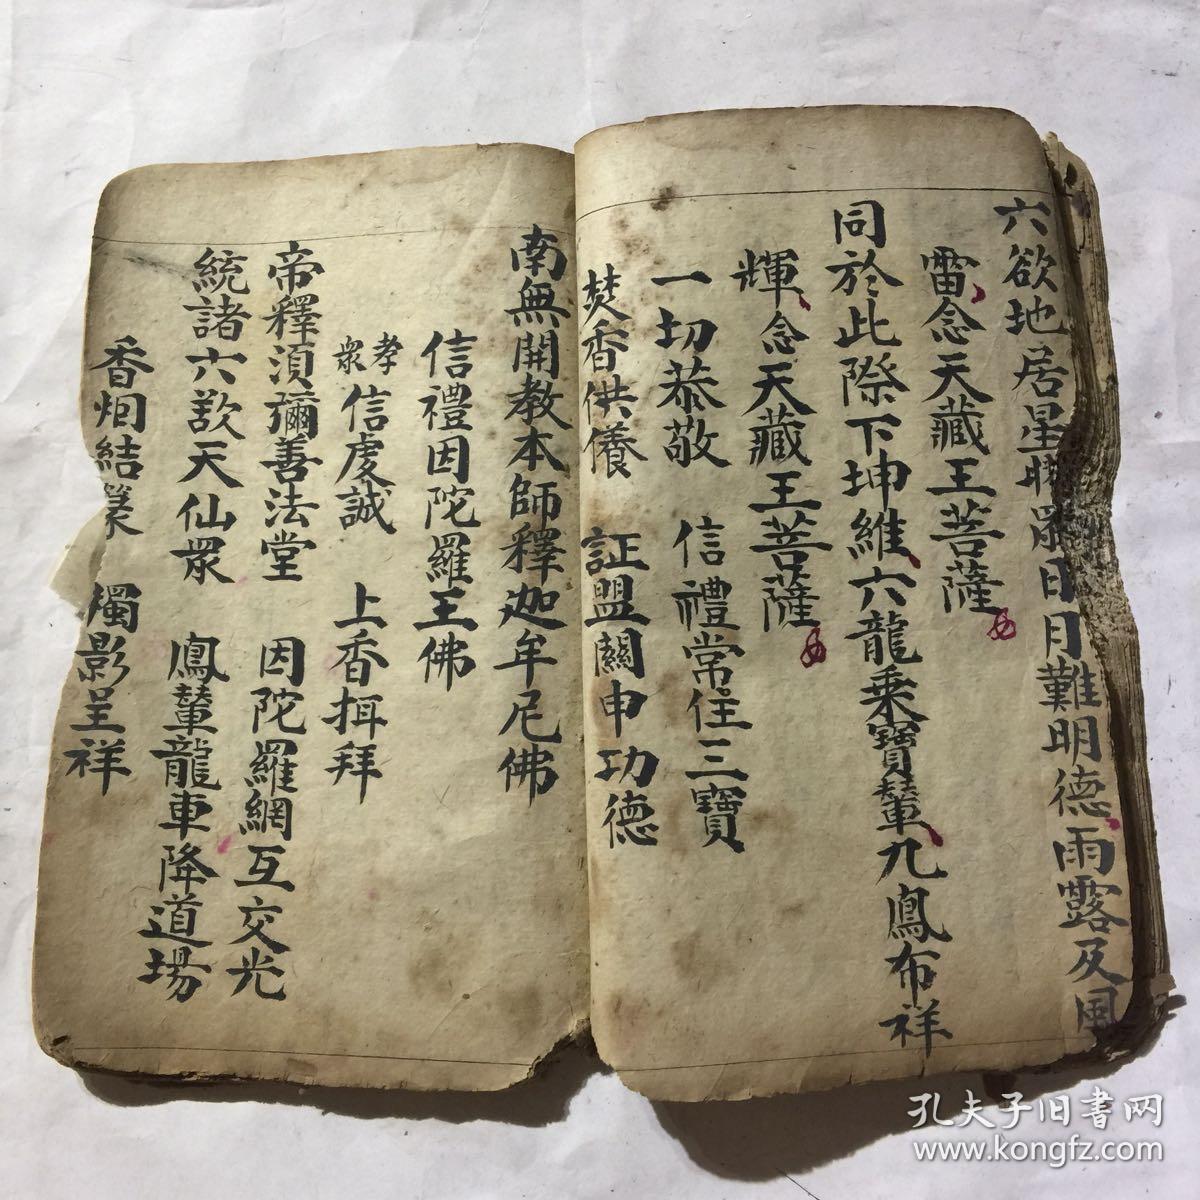 六欲地居星曜眾日月難明德雨露及風
雷念天藏王菩薩
同於此際下坤維六龍乘寶輦九鳳布祥
輝念天藏王菩薩
一切恭敬 信禮常住三寶
焚香供養 証盟關申功德
南無開教本師釋迦牟尼佛
信禮因陀羅王佛
孝眾信虔誠 上香揖拜
帝釋須彌善法堂 因陀羅網互交光
統諸六欲天仙眾 鳳輦龍車降道場
香烟結 燭影呈祥
孔夫子旧书网
www.kongfz.com